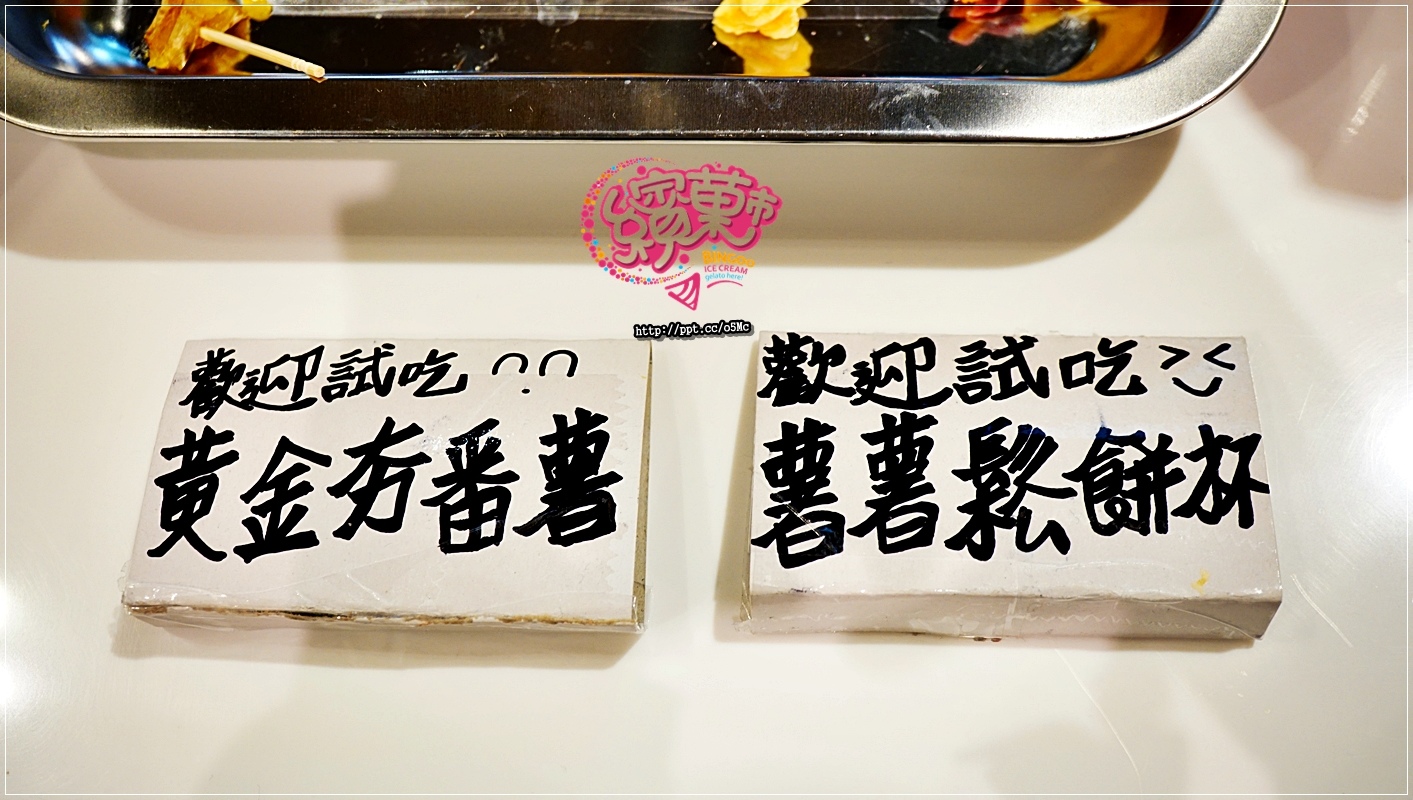 繽菓市
BINGO
ICE CREAM
gelato here!
http://ppt.cc/o5Mc
歡迎試吃
黃金夯番薯
歡迎試吃 ><
薯薯鬆餅杯